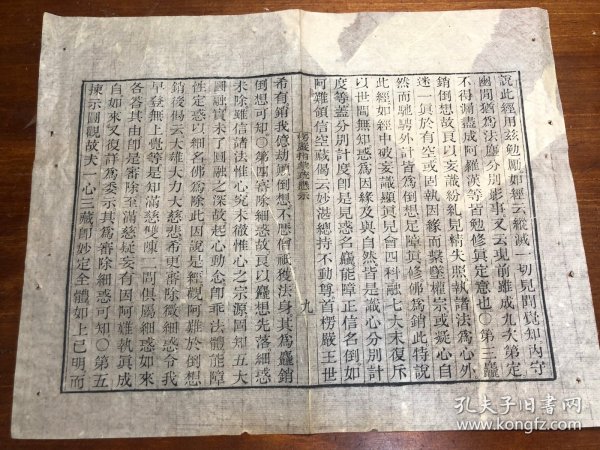 說此經用兹勉勵如經云縱滅一切見聞覺知內守
幽閒猶為法塵分別影事又云現前雖成九次第定
不得漏盡成阿羅漢等皆勉修真定意也〇第三麤
銷倒想故良以妄識紛糺見精失照執諸法為心外
迷一真於有空或固執因緣而繫墜權宗或疑心自
然而馳騁外計皆為倒想足障真修佛為銷此特說
此經如經中破妄識顯真見會四科融七大末復斥
以世間無知惑為因緣及與自然皆是識心分別計
度等蓋分別計度即是見惑名麤能障正信名倒如
阿難領信空藏偈云妙湛總持不動尊首楞嚴王世
九
希有銷我億劫顛倒想不歷僧祇獲法身其為麤銷
倒想可知〇第四審除細惑故良以麤想先落細惑
未除雖信諸法惟心究未徹惟心之宗源固知五大
圓融實未了圓融之深故起心動念即乖法體能障
性定惑以細名佛為除此因說是經觀阿難於倒想
銷後偈云大雄大力大慈悲希更審除微細惑令我
早登無上覺等是知滿慈雙陳二問俱屬細惑如來
各答其由即是審除至滿慈疑妄有因阿難執真成
自如來又復詳為委示其為審除細惑可知〇第五
揀示圓觀故夫一心三藏即妙定全體如上已明而
孔夫子旧书网
www.kongfz.com